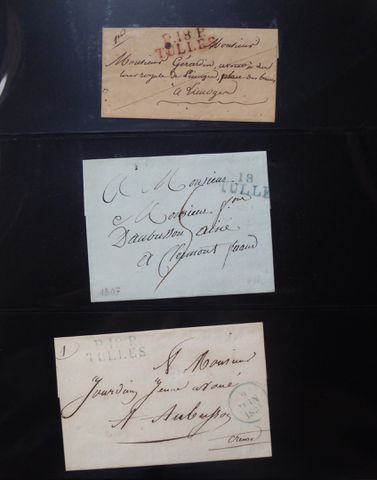 P.18.P.
TULLES
Monsieur
Monsieur Gérardin, avoué à la
cour royale de Limoges, place des
à Limoges
18
TULLE
A Monsieur
Monsieur
Daubusson ainé
A Clermont
1807
P.18.P.
TULLES
1
A Monsieur
Jourdain Jeune avoué
A Aubusson
Creuse
9
JUIN